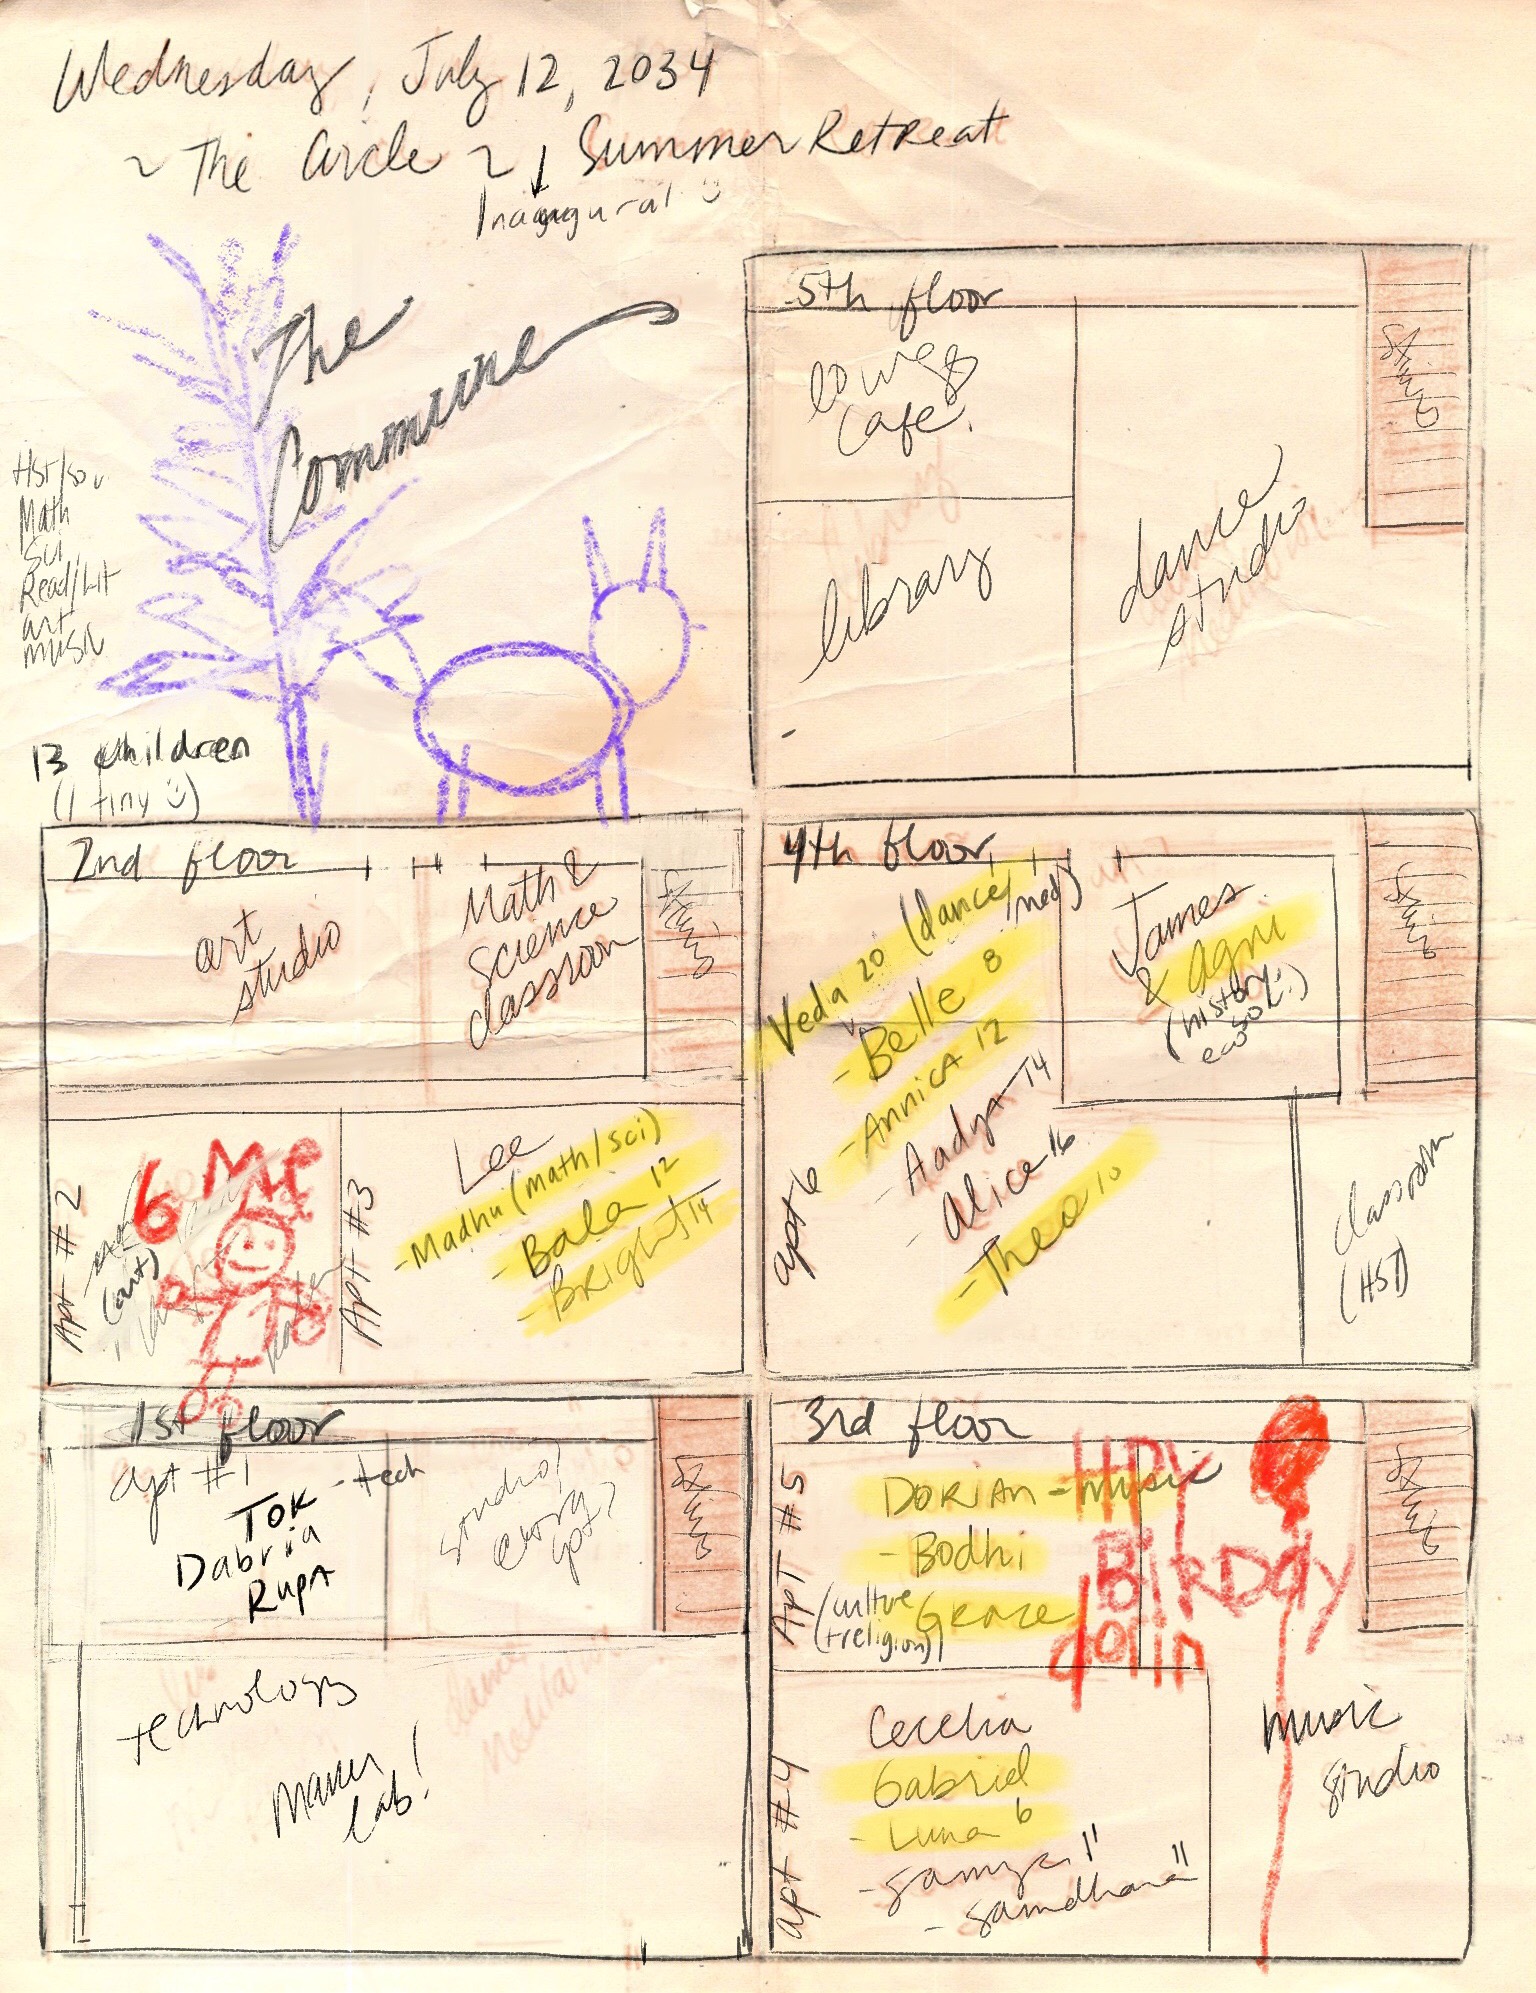 Wednesday, July 12, 2034
~ The Circle ~ Summer Retreat
Inaugural
The
Commune
Hst/So
Math
Sci
Read/Lit
art
music
13 children
(1 tiny)
5th floor
Cafe
library
dance
studio
stairs
2nd floor
art
studio
Math &
Science
classroom
stairs
Apt #2
(art)
6 Me
Apt #3
Lee
- Madhu (math/sci)
- Bala 12
- Bright 14
4th floor
Veda 20 (dance/med)
- Belle 8
- Annica 12
- Aadya 14
- Alice 16
- Theo 10
apt 6
James
& Agni
(history
eco sol.)
stairs
classroom
(HST)
1st floor
apt #1
Tok - tech
Dabria
Rupa
studio?
extra
apt?
stairs
technology
Maker
Lab!
3rd floor
Apt #5
Dorian - music
- Bodhi
Grace
(culture
+ religion)
HPY
BirDdy
dorin
stairs
apt #4
Cecelia
Gabriel
- Luna 6
- Samya 11
- Samdhana 11
music
studio